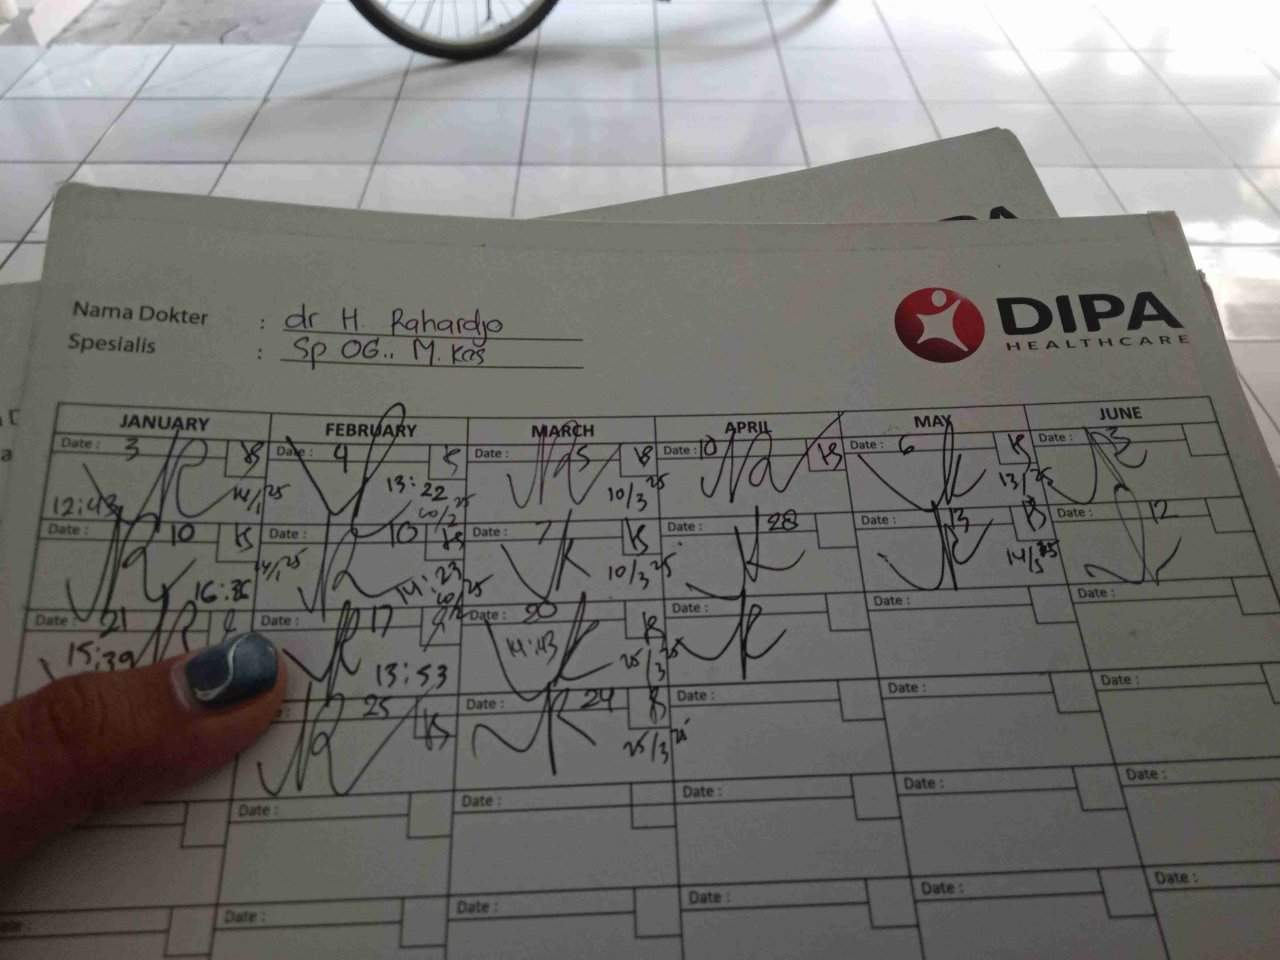 PA
Nama Dokter : dr H. Rahardjo
Spesialis : Sp OG., M. Kes
DIPA
HEALTHCARE
JANUARY FEBRUARY MARCH APRIL MAY JUNE
Date: 3 Date: 4 Date: 5 Date: 10 Date: 6 Date: 3
12:43 14/1 25 13:22 10/2 25 10/3 25 13/5 25
Date: 10 Date: 10 Date: 7 Date: 28 Date: 13 Date: 12
16:36 14/1 25 14:23 10/3 25 14/5 25
Date: 21 Date: 17 Date: 20 Date: Date: Date:
15:39 13:53 14:43 25/3 25
25 Date: 24 Date: Date: Date:
25/3 25
Date: Date: Date: Date: Date:
Date: Date: Date: Date: Date: